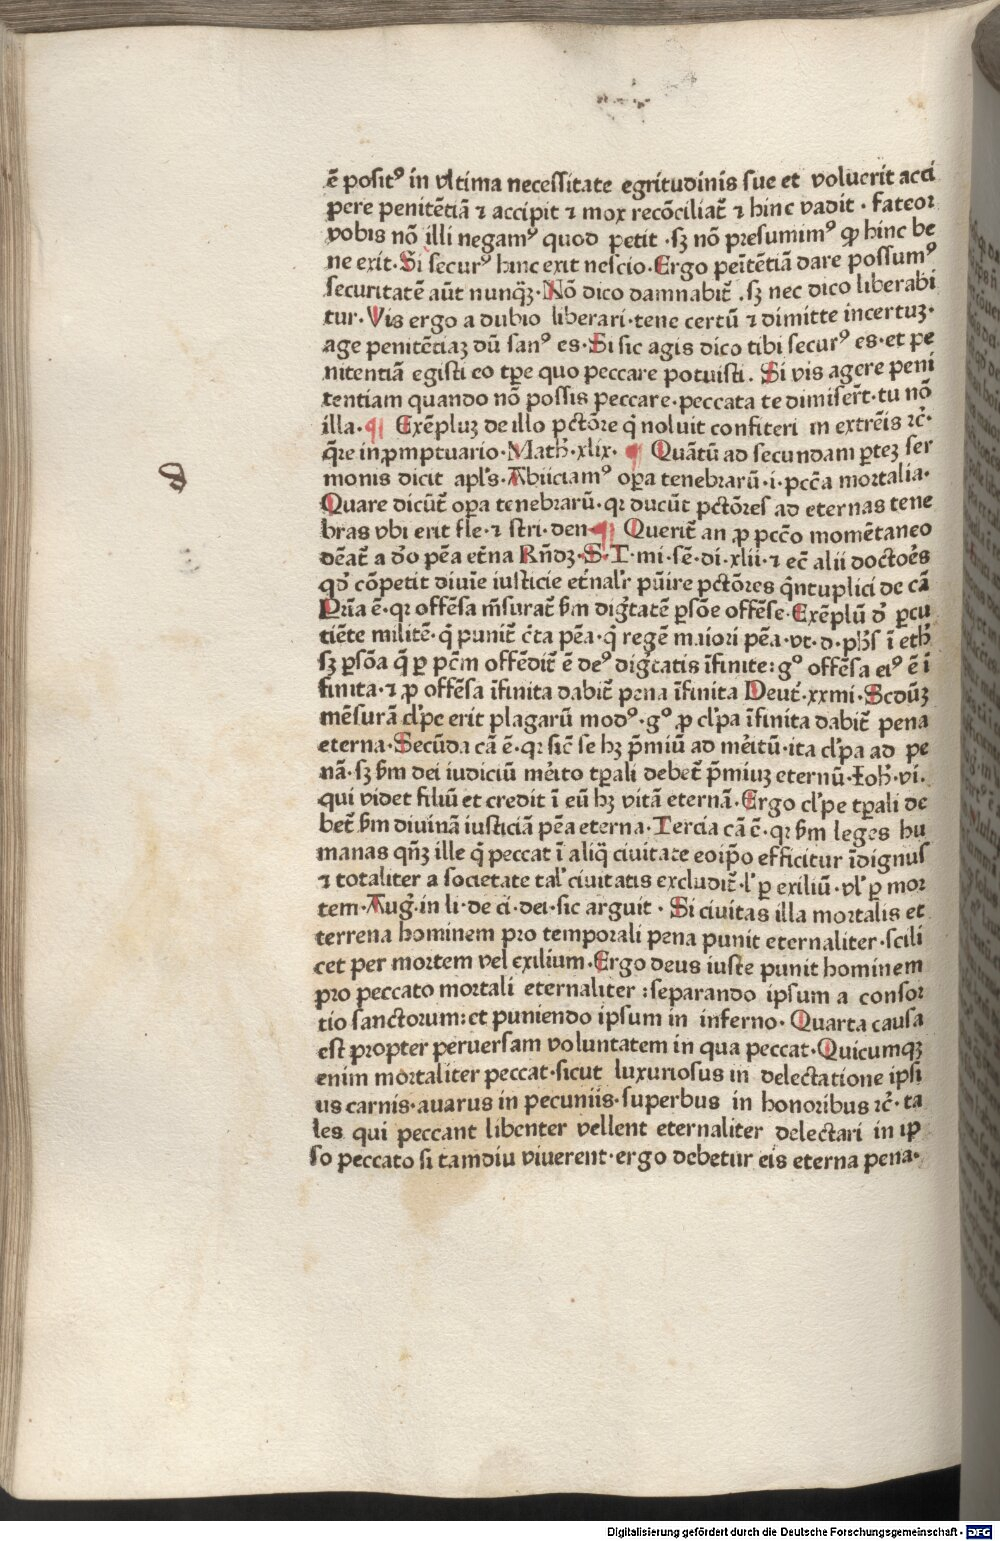 ē positꝰ in vltima necessitate egritudinis sue et voluerit acci
pere penitētiā ⁊ accipit ⁊ mox recōciliat̄ ⁊ hinc vadit · fateor
vobis nō illi negamꝰ quod petit ·sꝫ nō presumimꝰ ꝙ hinc be
ne exit· Si securꝰ hinc exit nescio· Ergo peītētiā dare possumꝰ
securitatē aūt nunqꝫ· Nō dico damnabit̄ .sꝫ nec dico liberabi
tur· Vis ergo a dubio liberari·tene certū ⁊ dimitte incertuꝫ·
age penitētiaꝫ dū sanꝰ es· Si sic agis dico tibi securꝰ es·et pe
nitentiā egisti eo tꝑe quo peccare potuisti. Si vis agere peni
tentiam quando nō possis peccare·peccata te dimiser̄t·tu nō
illa· ¶ Exēpluꝫ de illo pctōre q̇ noluit confiteri in extrēis ⁊c̄·
q̄re in ꝓmptuario· Math̄·xlix· ¶ Quātū ad secundam ꝑteꝫ ser
monis dicit apl's· Abiiciamꝰ oꝑa tenebrarū·i·pccā mortalia·
Quare dicūt̄ oꝑa tenebrarū·qꝛ ducūt pctōres ad eternas tene
bras vbi erit fle·⁊ stri·den· ¶ Querit̄ an ꝓ pccō momētaneo
dēat̄ a dō pēa et̄na Rn̄dꝫ· S· T·mi·sē·di·xlii·⁊ ec̄ alii doctoēs
qd̄ cōpetit diuīe iusticie et̄nal'r pūire pctōres q̇ntuplici de cā
Pr̄ia ē·qꝛ offēsa m̄surat̄ ẜm diḡtatē ꝑsōe offēse· Exēplū d̄ ꝑcu
tiēte militē·q̇ punit̄ c̄ta pēa·q̇ regē maiori pēa·vt·d·ph̄s ī eth̄
sꝫ ꝑsōa q̄ ꝑ pc̄m offēdit̄ ē deꝰ diḡtatis īfinite: gꝰ offēsa eiꝰ ē ī
finita·⁊ ꝓ offēsa īfinita dabit̄ pena īfinita Deut̄·xxmi· Scdūꝫ
mēsurā cl'pe erit plagarū modꝰ·gꝰ ꝓ cl'pa īfinita dabit̄ pena
eterna· Secūda cā ē·qꝛ sic̄ se hꝫ p̄miū ad mēitū·ita cl'pa ad pe
nā·sꝫ ẜm dei iudiciū mēito tꝑali debet̄ p̄miuꝫ eternū· Ioh̄·vi·
qui videt filiū et credit ī eū hꝫ vitā eternā· Ergo cl'pe tꝑali de
bet̄ ẜm diuinā iusticiā pēa eterna· Tercia cā ē·qꝛ ẜm leges hu
manas qn̄ꝫ ille q̇ peccat ī aliq̄ ciuitate eoip̄o efficitur īdignus
⁊ totaliter a societate tal' ciuitatis excludit̄·l' ꝑ exiliū·vl' ꝑ mor
tem· Auḡ·in li·de ci·dei·sic arguit · Si ciuitas illa mortalis et
terrena hominem pro temporali pena punit eternaliter·scili
cet per mortem vel exilium· Ergo deus iuste punit hominem
pro peccato mortali eternaliter :separando ipsum a consor
tio sanctorum:et puniendo ipsum in inferno· Quarta causa
est propter peruersam voluntatem in qua peccat· Quicumqꝫ
enim mortaliter peccat·sicut luxuriosus in delectatione ipsi
us carnis·auarus in pecuniis·superbus in honoribus ⁊c̄·ta
les qui peccant libenter vellent eternaliter delectari in ip
so peccato si tamdiu viuerent·ergo debetur eis eterna pena·
Digitalisierung gefördert durch die Deutsche Forschungsgemeinschaft - DFG